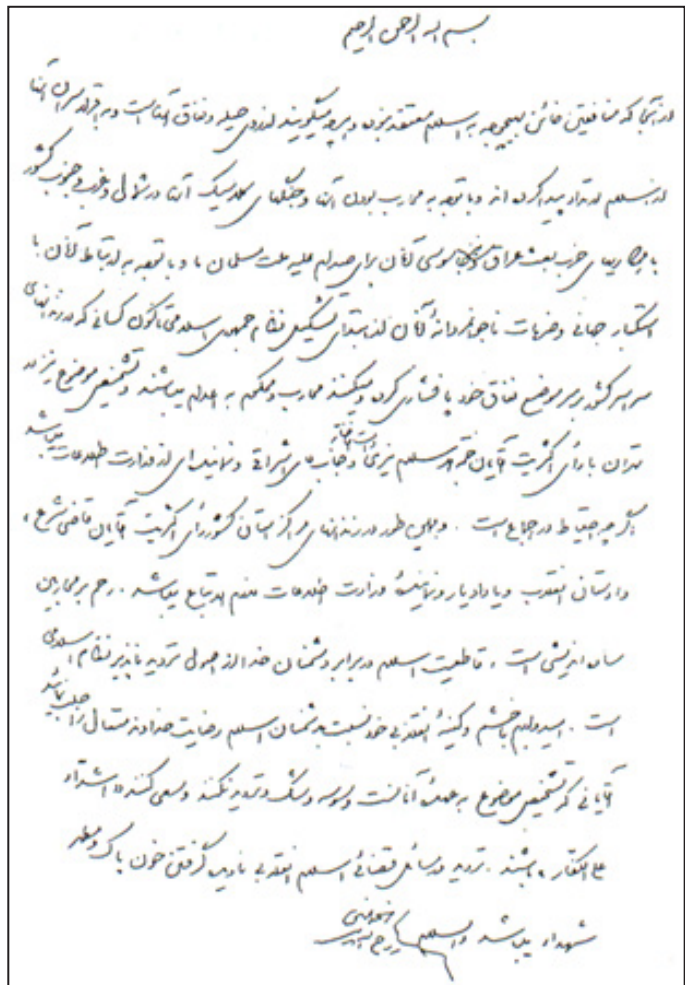 بسم الله الرحمن الرحیم
از آنجا که منافقین خائن بهیچوجه به اسلام معتقد نبوده و هر چه میگویند از روی حیله و نفاق آنهاست و به اقرار سران آنها
از اسلام ارتداد پیدا کرده اند و با توجه به محارب بودن آنها و جنگهای کلاسیک آنها در شمال و غرب و جنوب کشور
با همکاریهای حزب بعث عراق و نیز جاسوسی آنان برای صدام علیه ملت مسلمان ما و با توجه به ارتباط آنان با
استکبار جهانی و ضربات ناجوانمردانهٔ آنان از ابتدای تشکیل نظام جمهوری اسلامی تا کنون کسانی که در زندانهای
سراسر کشور بر سر موضع نفاق خود پافشاری کرده و میکنند محارب و محکوم به اعدام میباشند و تشخیص موضوع نیز در
تهران با رأی اکثریت آقایان حجة الاسلام نیری دامت افاضاته و جناب آقای اشراقی و نماینده ای از وزارت اطلاعات میباشد
اگر چه احتیاط در اجماع است . و همین طور در زندانهای مراکز استان کشور رأی اکثریت آقایان قاضی شرع ،
دادستان انقلاب و یا دادیار و نمایندهٔ وزارت اطلاعات لازم الاتباع میباشد . رحم بر محاربین
ساده اندیشی است ، قاطعیت اسلام در برابر دشمنان خدا از اصول تردید ناپذیر نظام اسلامی
است . امیدوارم با خشم و کینهٔ انقلابی خود نسبت به دشمنان اسلام رضایت خداوند متعال را جلب نمائید
آقایانی که تشخیص موضوع به عهدهٔ آنان است وسوسه و شک و تردید نکنند و سعی کنند « اشداء
علی الکفار » باشند . تردید در مسائل قضائی اسلام انقلابی نادیده گرفتن خون پاک و مطهر
شهداء میباشد والسلام
روح الله الموسوی الخمینی